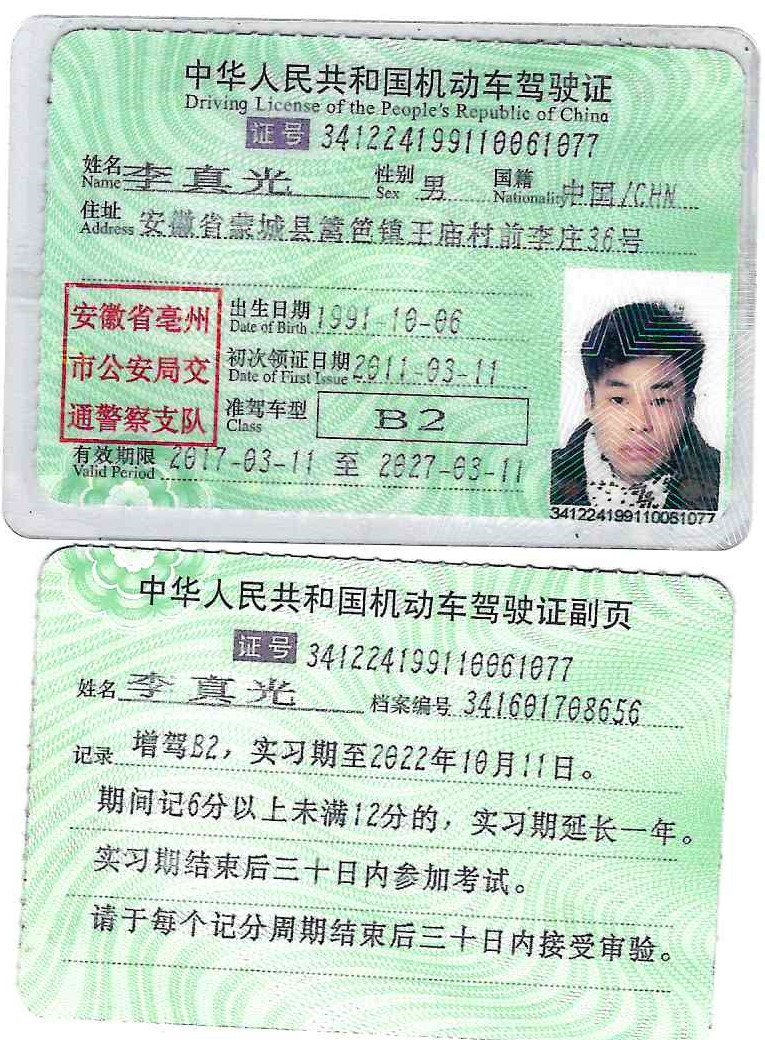 中华人民共和国机动车驾驶证
Driving License of the People's Republic of China
证号 341224199110061077
姓名 Name 李真光 性别 Sex 男 国籍 Nationality 中国/CHN
住址 Address 安徽省蒙城县篱笆镇王庙村前李庄36号
安徽省亳州
市公安局交
通警察支队
出生日期 Date of Birth 1991-10-06
初次领证日期 Date of First Issue 2011-03-11
准驾车型 Class B2
有效期限 Valid Period 2017-03-11 至 2027-03-11
341224199110061077
中华人民共和国机动车驾驶证副页
证号 341224199110061077
姓名 李真光 档案编号 341601708656
记录 增驾B2，实习期至2022年10月11日。
期间记6分以上未满12分的，实习期延长一年。
实习期结束后三十日内参加考试。
请于每个记分周期结束后三十日内接受审验。